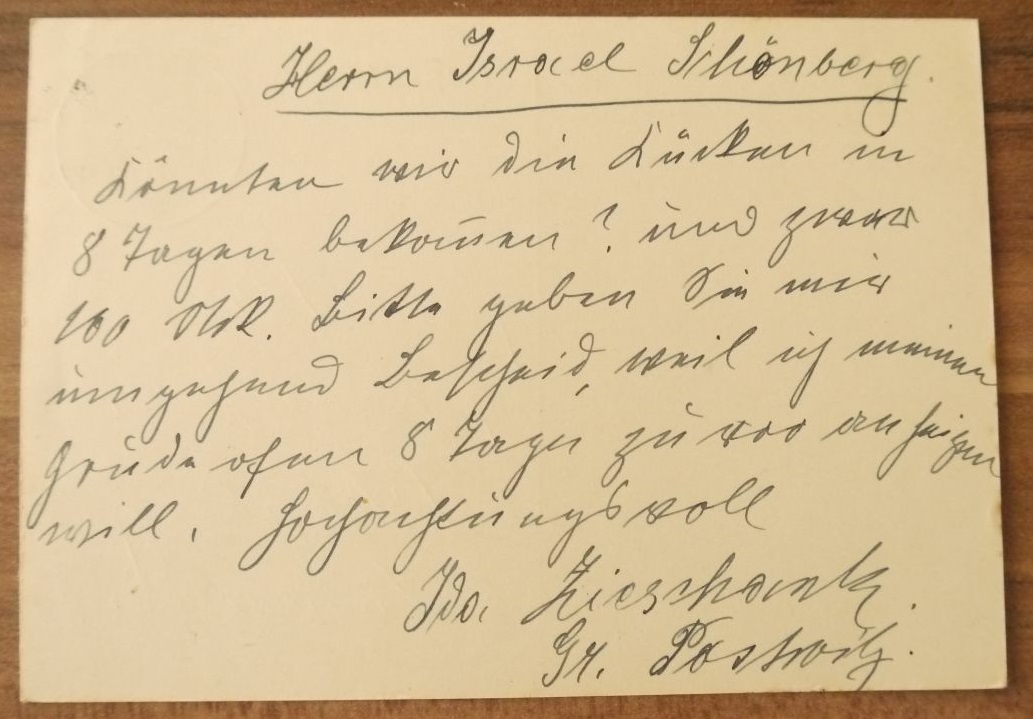 Herrn Israel Schönberg.
Könnten wir die Kücken in
8 Tagen bekom̄en? und zwar
100 Stk. Bitte geben Sie mir
umgehend Bescheid, weil ich meinen
Grudeofen 8 Tage zuvor anheizen
will. Hochachtungsvoll
Ida Zieschank.
Gr. Postwitz.